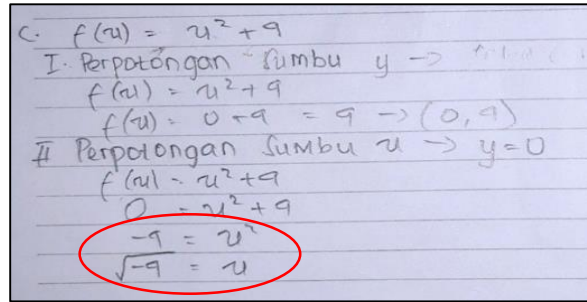 C. f(x) = x² + 9
I. Perpotongan sumbu y →
f(x) = x² + 9
f(x) = 0 + 9 = 9 → (0, 9)
II Perpotongan sumbu x → y = 0
f(x) = x² + 9
0 = x² + 9
-9 = x²
√-9 = x